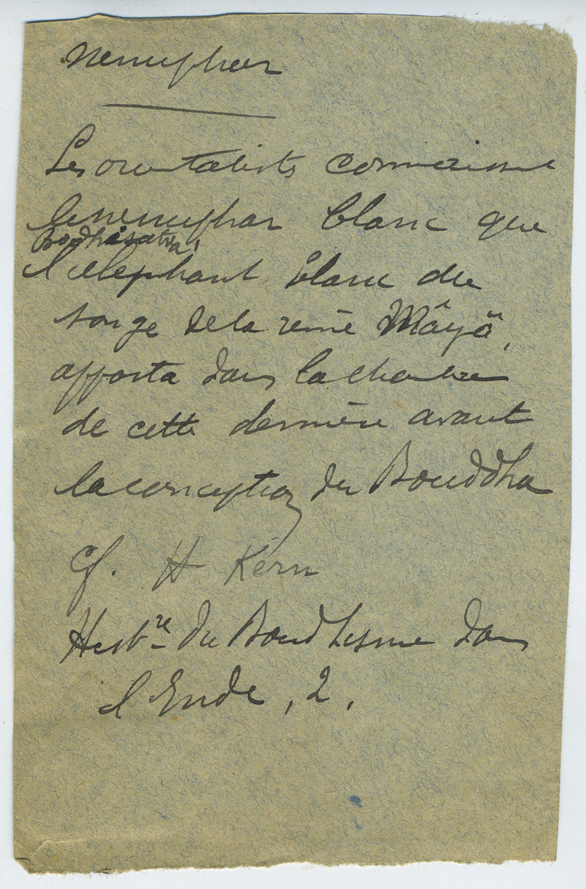 Nenuphar
Les orientalists connaissent
le nenuphar blanc que
Bodhisatva
l'elephant blanc du
songe de la reine Mâyâ,
apporta dans la chambre
de cette dernière avant
la conception du Bouddha
cf. H Kern
Histre du Boudhisme dans
l'Inde, 2.